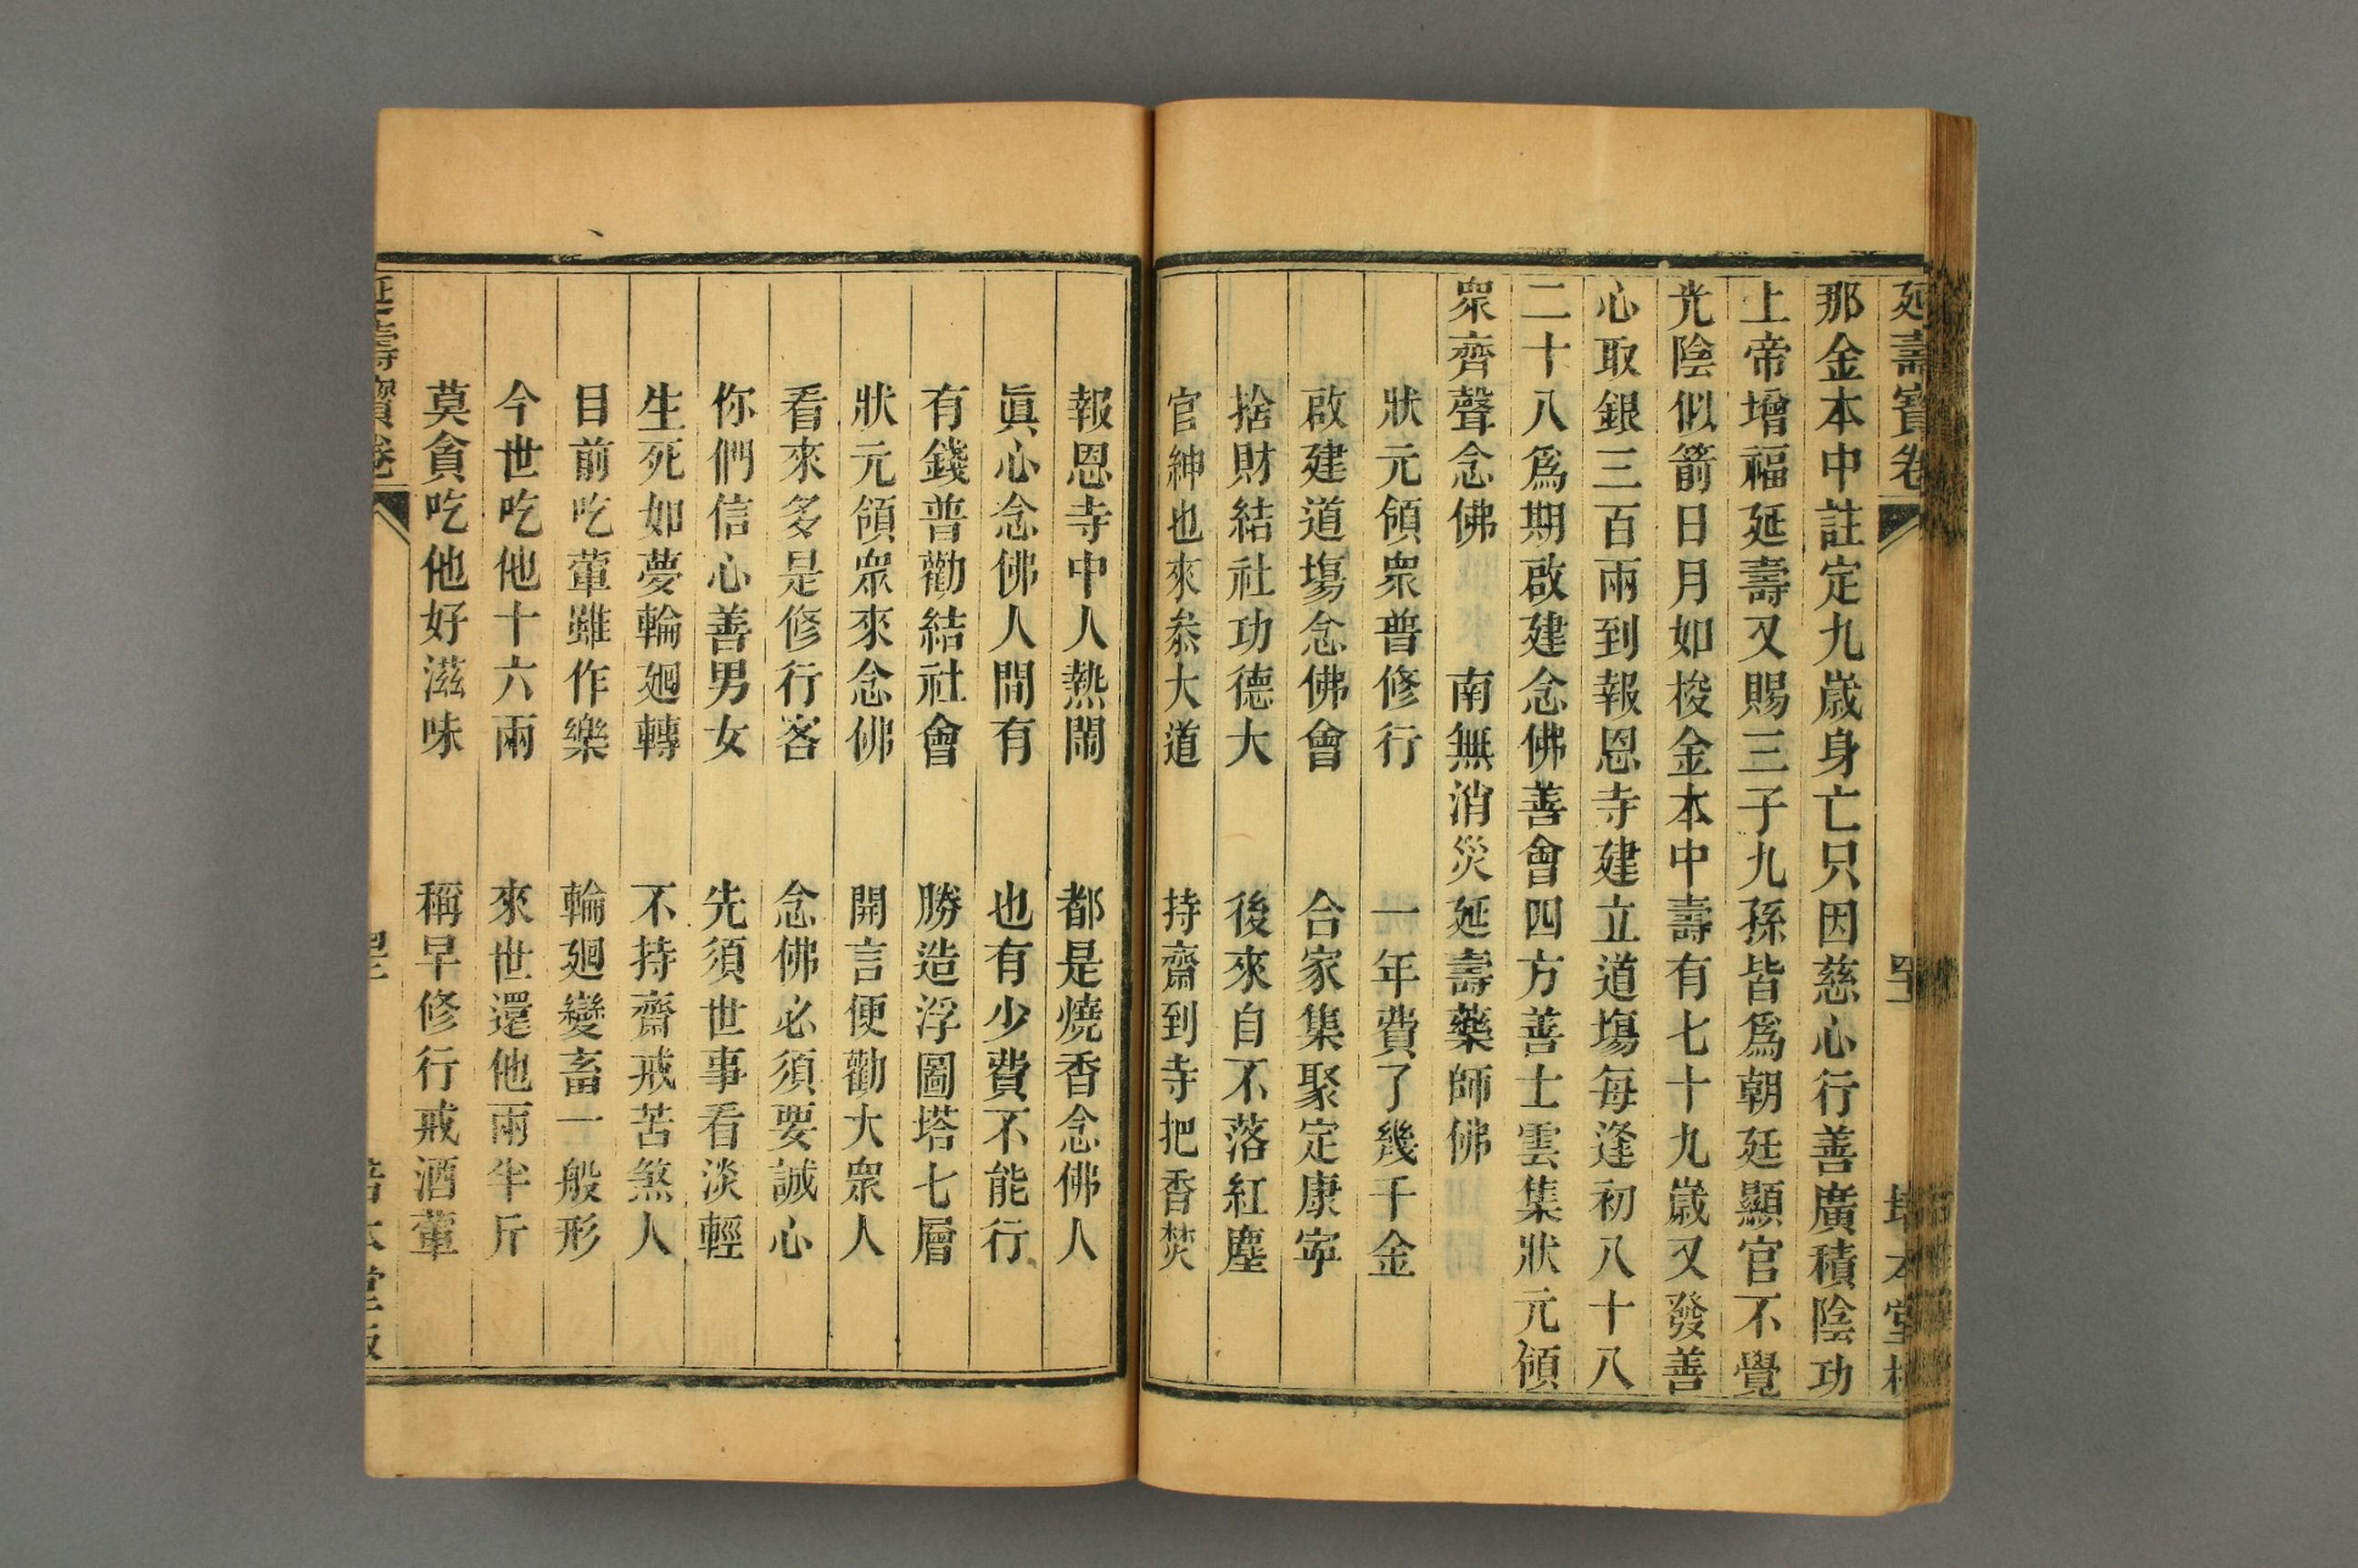 延壽寶卷
那金本中註定九歲身亡只因慈心行善廣積陰功
上帝增福延壽又賜三子九孫皆爲朝廷顯官不覺
光陰似箭日月如梭金本中壽有七十九歲又發善
心取銀三百兩到報恩寺建立道塲每逢初八十八
二十八爲期啟建念佛善會四方善士雲集狀元領
眾齊聲念佛　　南無消災延壽藥師佛
狀元領眾普修行　　一年費了幾千金
啟建道塲念佛會　　合家集聚定康寧
捨財結社功德大　　後來自不落紅塵
官紳也來叅大道　　持齋到寺把香焚
報恩寺中人熱鬧　　都是燒香念佛人
眞心念佛人間有　　也有少費不能行
有錢普勸結社會　　勝造浮圖塔七層
狀元領眾來念佛　　開言便勸大眾人
看來多是修行客　　念佛必須要誠心
你們信心善男女　　先須世事看淡輕
生死如夢輪廻轉　　不持齋戒苦煞人
目前吃葷雖作樂　　輪廻變畜一般形
今世吃他十六兩　　來世還他兩半斤
莫貪吃他好滋味　　稱早修行戒酒葷
延壽寶卷